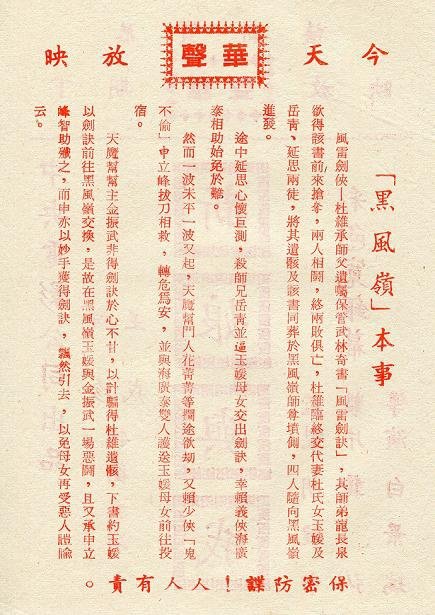 今天 華聲 放映
「黑風嶺」本事
風雷劍俠—杜維承師父遺囑保管武林奇書「風雷劍訣」，其師弟龍長泉
欲得該書前來搶奪，兩人相鬪，終兩敗俱亡，杜維臨終交代妻杜氏女玉媛及
岳青、延思兩徒，將其遺骸及該書同葬於黑風嶺師尊墳側，四人隨向黑風嶺
進發。
途中延思心懷叵測，殺師兄岳青並逼玉媛母女交出劍訣，幸賴義俠海廣
泰相助始免於難。
然而一波未平一波又起，天魔幫門人花菁菁等攔途欲劫，又賴少俠「鬼
不偷」申立峰拔刀相救，轉危爲安，並與海廣泰雙人護送玉媛母女前往投
宿。
天魔幫幫主金振武非得劍訣於心不甘，以計騙得杜維遺骸，下書約玉媛
以劍訣前往黑風嶺交換，是故在黑風嶺玉媛與金振武一場惡鬪，且又承申立
峰智助殲之，而申亦以妙手獲得劍訣，飄然引去，以免母女再受惡人詭踰
云。
保密防諜！人人有責。